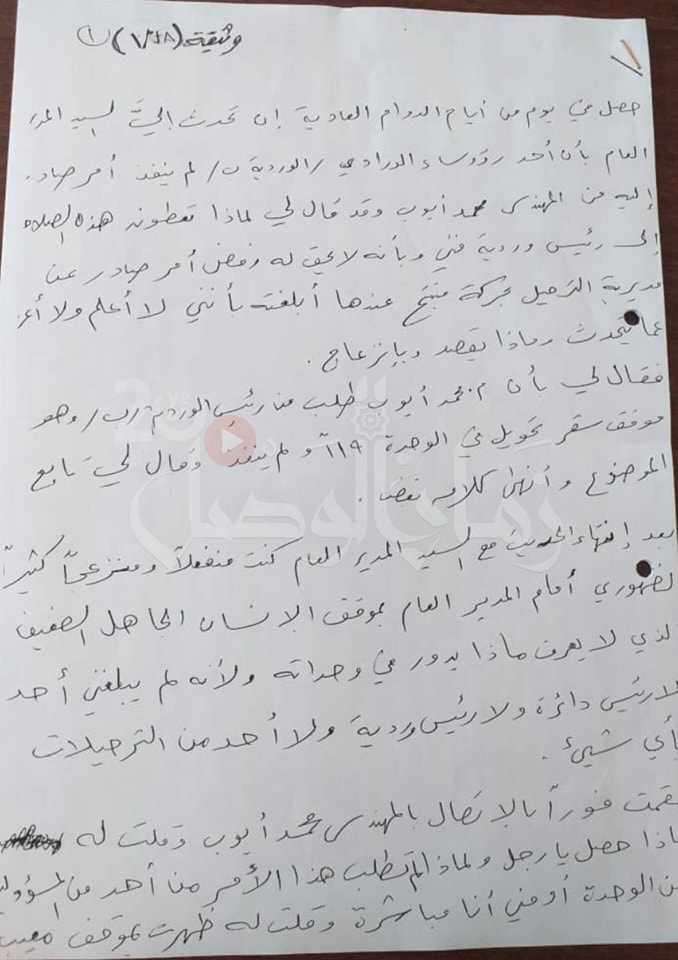 وثيقة (١/٣٨) (١)
حصل في يوم من أيام الدوام العادية إن تحدث إليَّ السيد المدير
العام بأن أحد رؤوساء الورادي /الوردية ب/ لم ينفذ أمر صادر
إليه من المهندس محمد أيوب وقد قال لي لماذا تعطون هذه الصلاه
إلى رئيس وردية فني وبأنه لا يحق له رفض أمر صادر عن
مديرية الترحيل بحركة منتج عندها أبلغته بأنني لا أعلم ولا أعر
عما يتحدث وماذا يقصد وبإنزعاج .
فقال لي بأن م. محمد أيوب طلب من رئيس الوردية /ب/ وهو
موفق سقر تحويل في الوحدة ١١٩ ولم ينفذ وقال لي تابع
الموضوع وأنهى كلامه بغضب .
بعد إنتهاء الحديث مع السيد المدير العام كنت منفعلاً ومنزعجاً كثيراً
لظهوري أمام المدير العام بموقف الإنسان الجاهل الضعيف
لذي لا يعرف ماذا يدور في وحداته ولأنه لم يبلغني أحد
لا رئيس دائرة ولا رئيس وردية ولا أحد من الترحيلات
بأي شيئ .
فقمت فوراً بالإتصال بالمهندس محمد أيوب وقلت له
ماذا حصل يا رجل ولماذا لم تطلب هذا الأمر من أحد من المسؤولين
عن الوحدة أو مني أنا مباشرة وقلت له ظهرت بموقف معيب
زمان الوصل
20 years